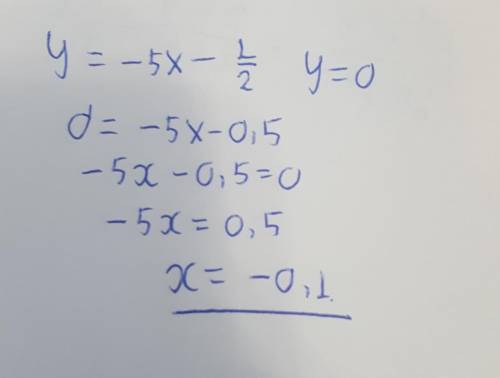 y = -5x - 1/2   y=0
0 = -5x-0,5
-5x-0,5=0
-5x=0,5
x= -0,1.